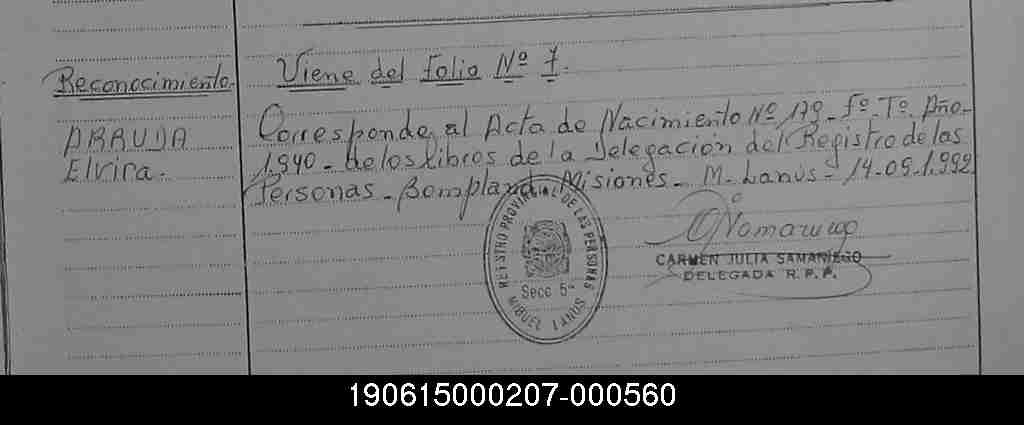 Reconocimiento.
ARRUDA
Elvira.-
Viene del Folio Nº 7.
Corresponde al Acta de Nacimiento Nº 179 - Fº - Tº - Año -
1.940 - de los libros de la Delegación del Registro de las
Personas - Bompland - Misiones - M. Lanús - 14-09-1.992
REGISTRO PROVINCIAL DE LAS PERSONAS
Secc 5ª
MISIONES
CARMEN JULIA SAMANIEGO
DELEGADA R. P. P.
190615000207-000560